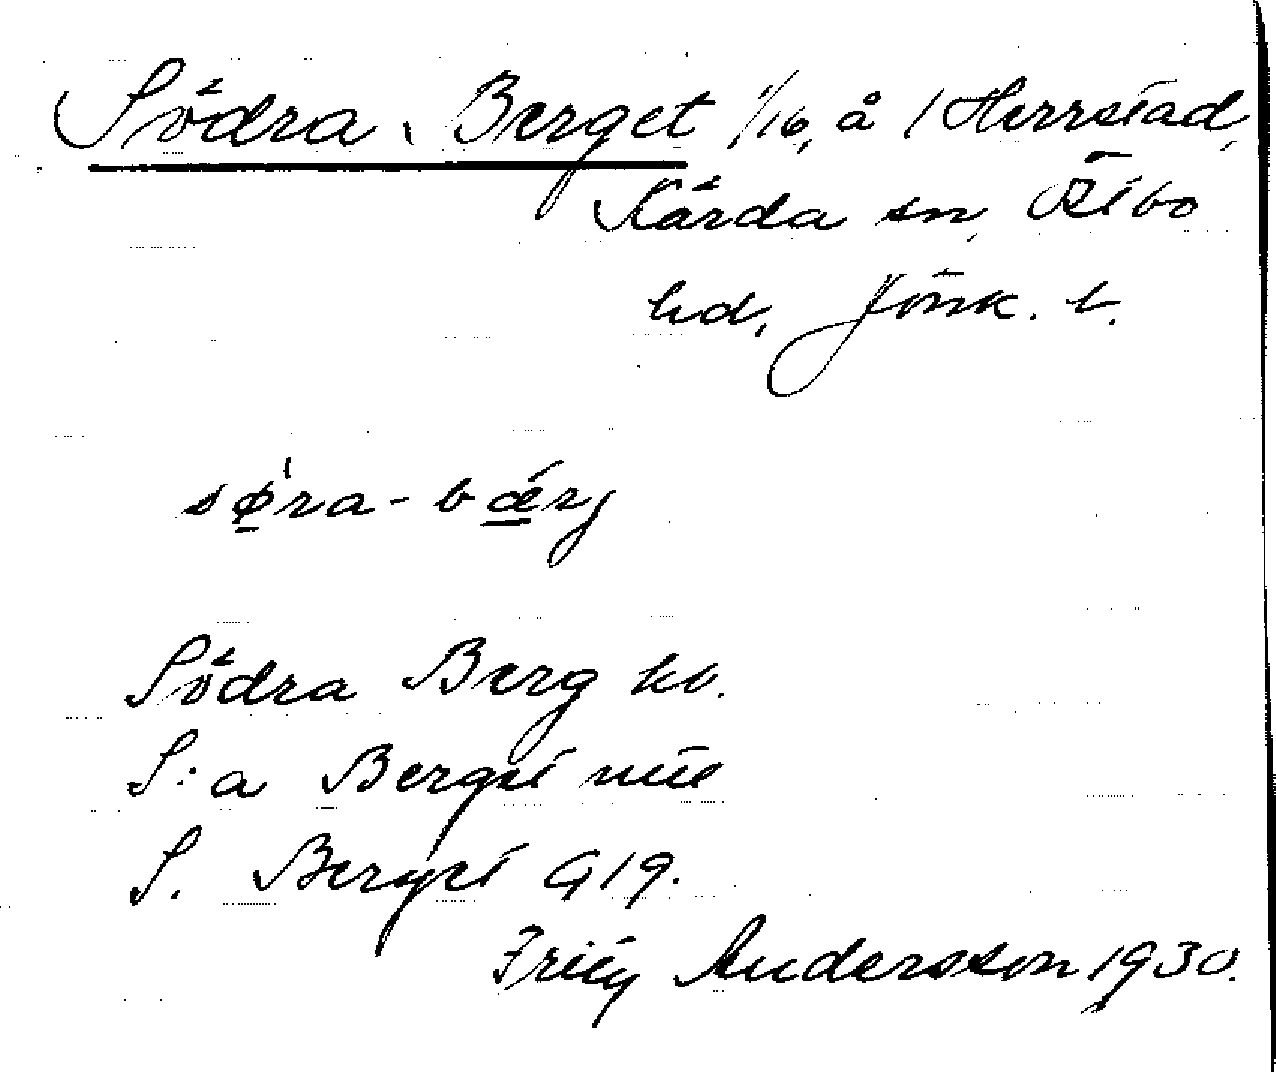 Södra Berget 1/16, å 1 Herrstad,
Kärda sn, Östbo
hd, Jönk. l.
sǿ̱ra-bǽ̱rj
Södra Berg kb.
S:a Berget
S. Berget G19.
Andersson 1930.